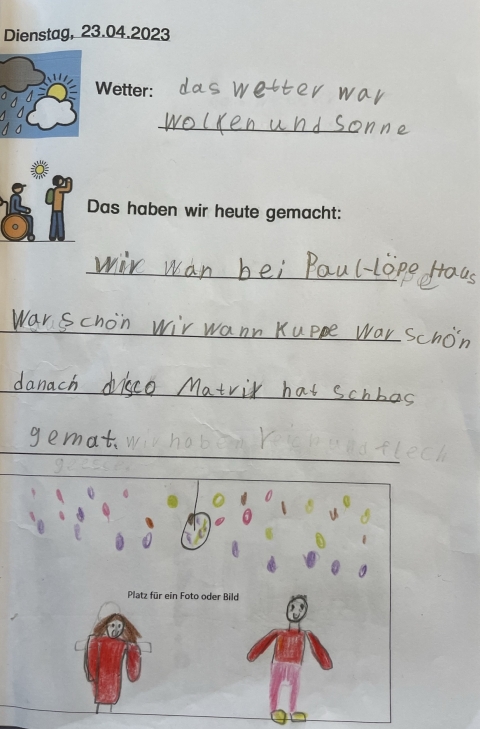 Dienstag, 23.04.2023
Wetter: das wetter war
wolken und sonne
Das haben wir heute gemacht:
wir wan bei Paul-löpe Haus
War schön wir wann Kuppe war schön
danach disco Matrix hat schbas
gemat. wir haben reis und flech
gegessen
Platz für ein Foto oder Bild